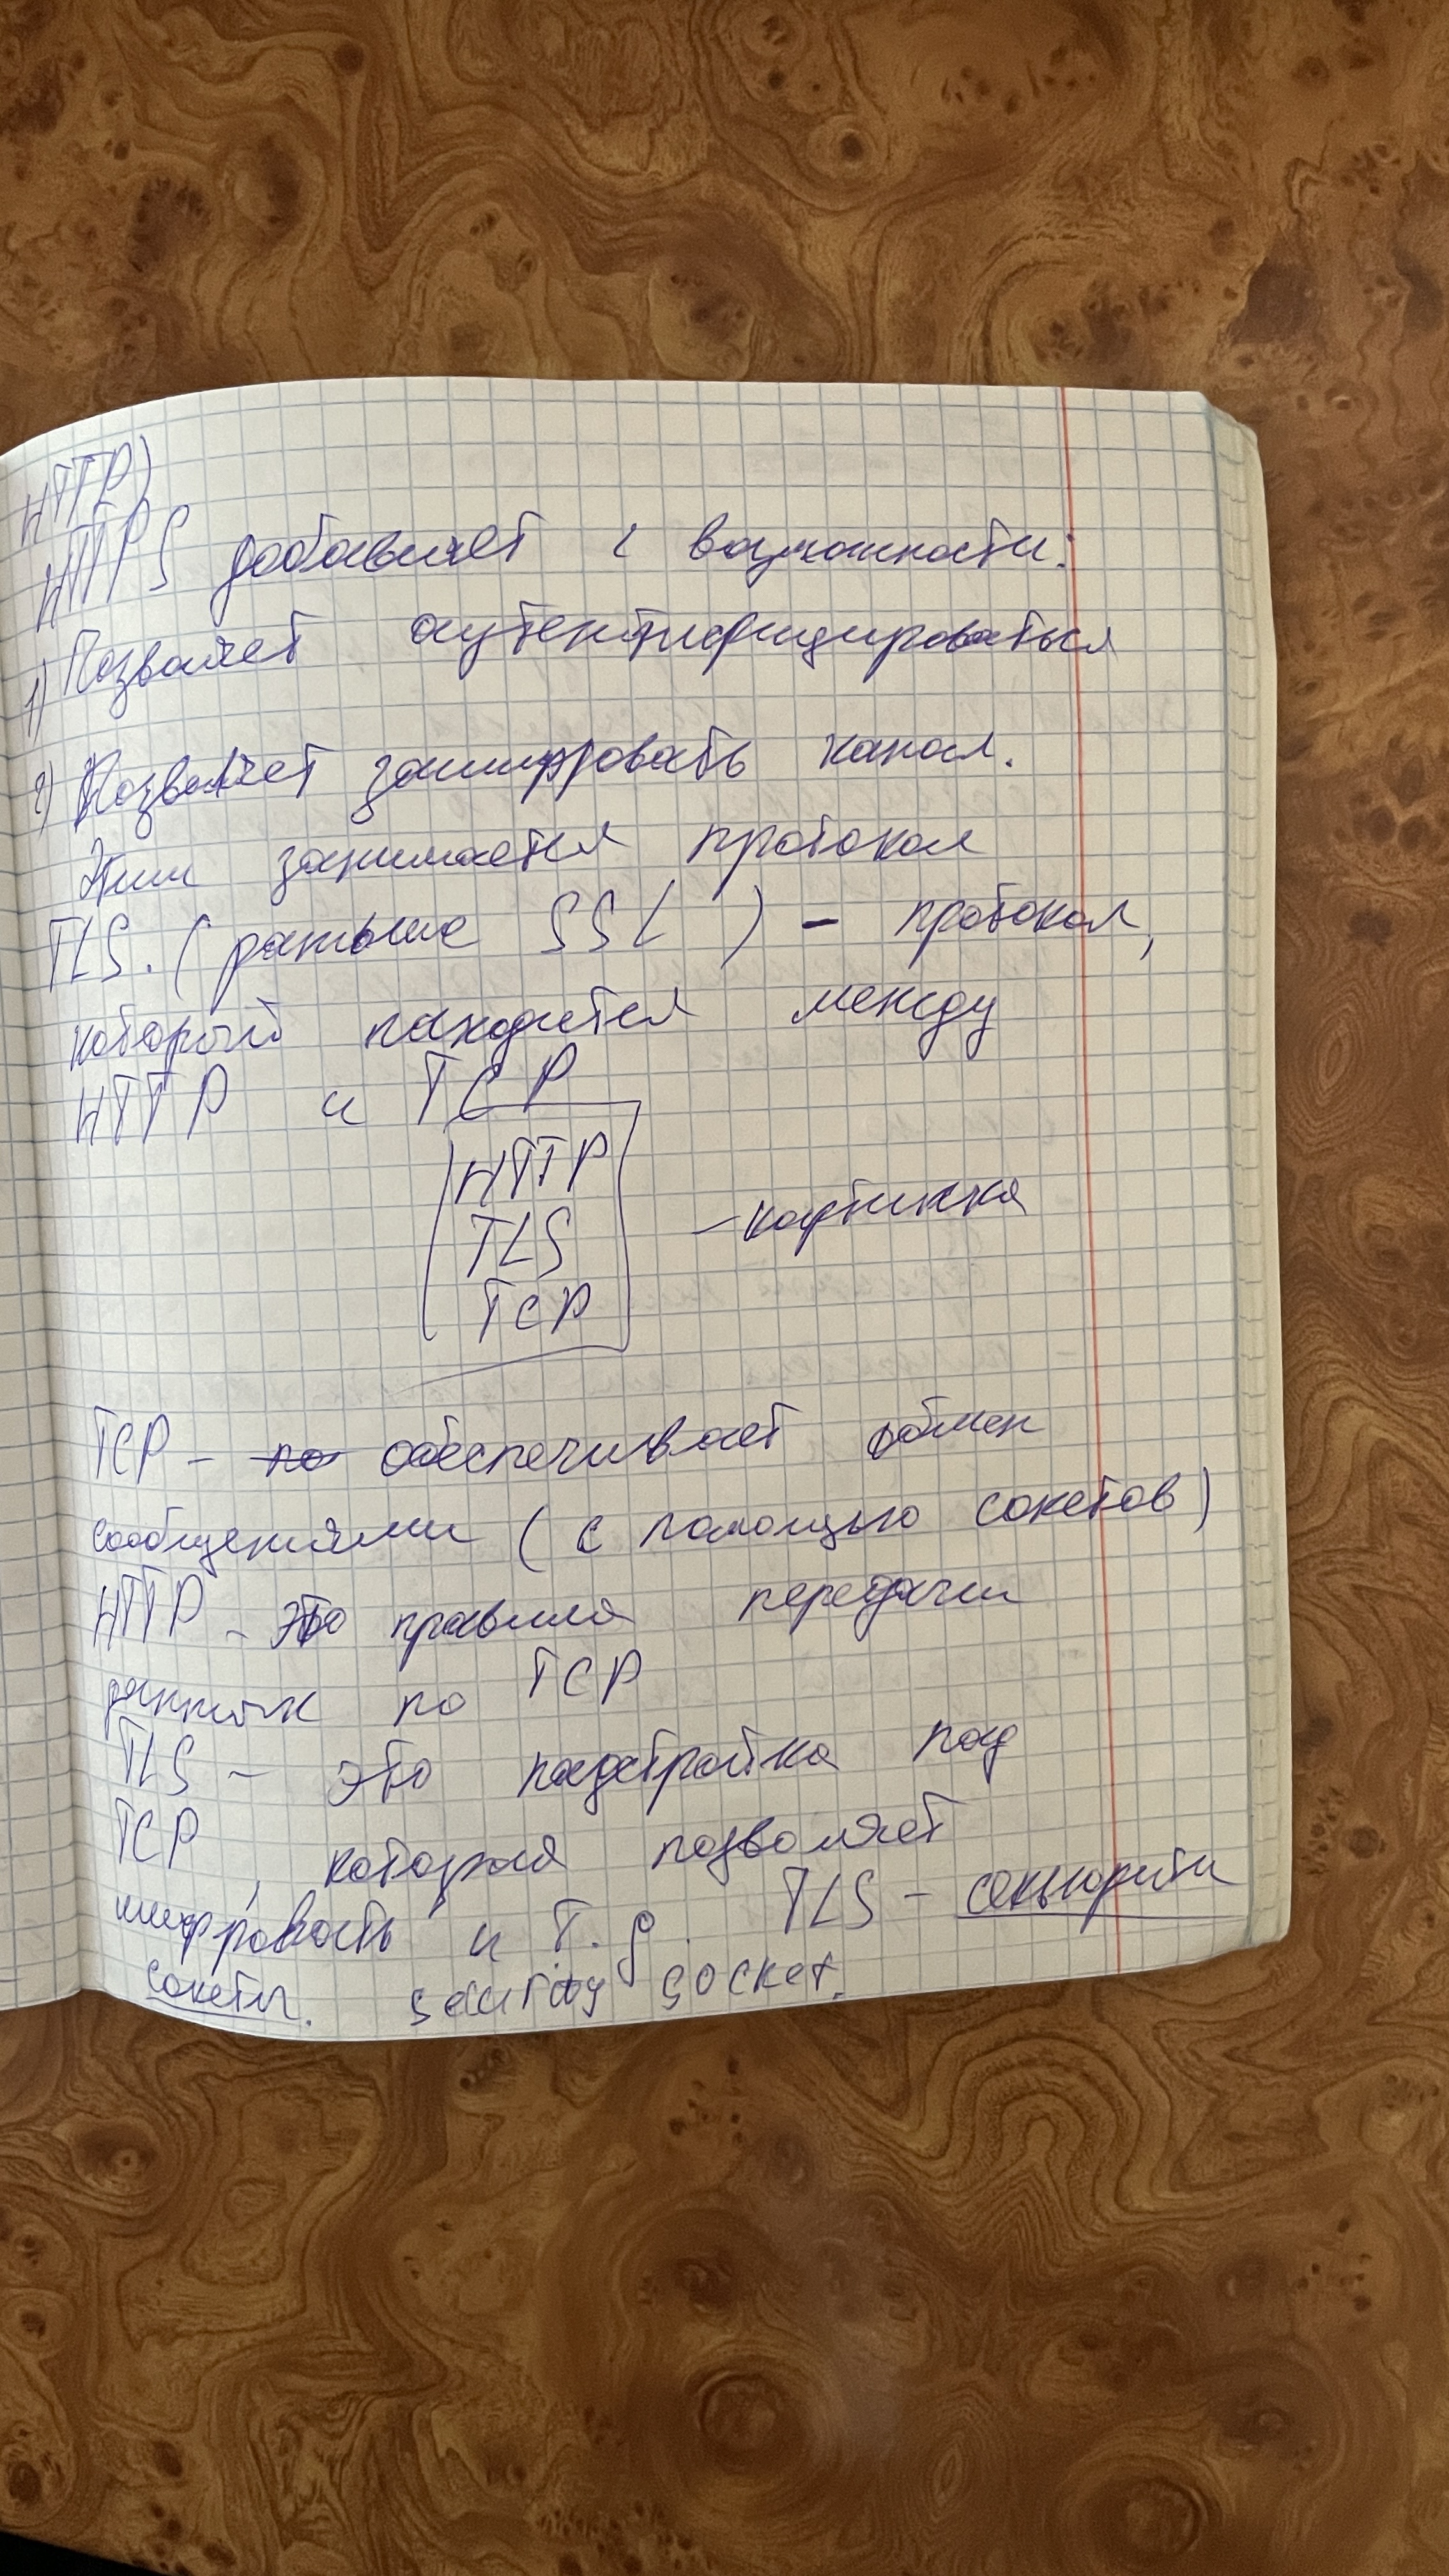 HTTP)
HTTPS добавляет 2 возможности:
1) Позволяет аутентифицироваться
2) Позволяет зашифровать канал.
Этим занимается протокол
TLS. (раньше SSL) - протокол,
который находится между
HTTP и TCP
HTTP
TLS - картинка
TCP
TCP - по обеспечивает обмен
сообщениями (с помощью сокетов)
HTTP - это правила передачи
данных по TCP
TLS - это надстройка над
TCP, которая позволяет
шифровать и т.д. TLS - секьюрити
сокеты. security socket.